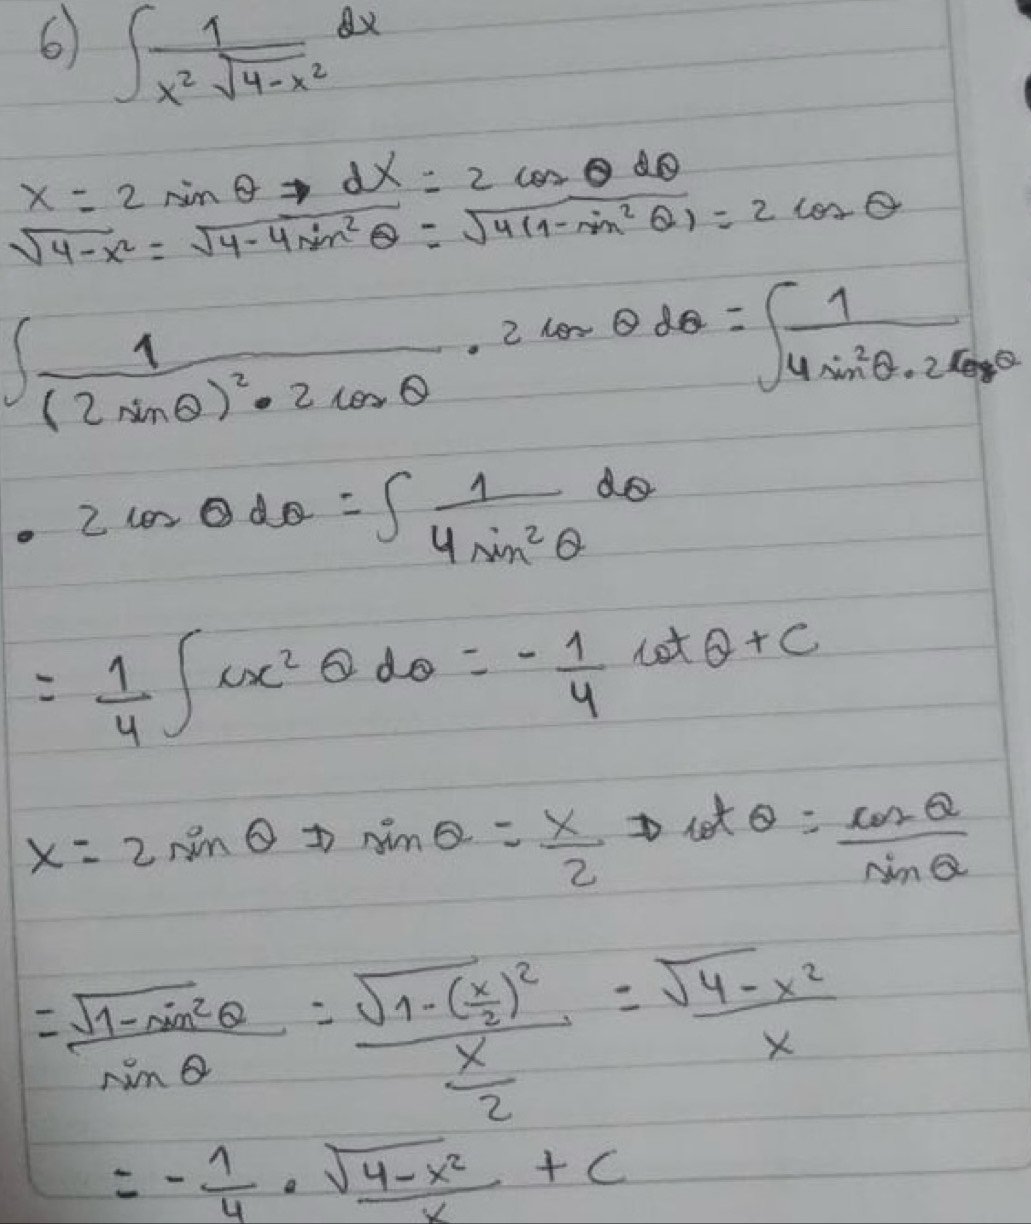 6) ∫ 1/(x² √(4-x²)) dx
x = 2 sin θ ⇒ dx = 2 cos θ dθ
√(4-x²) = √(4-4 sin² θ) = √(4(1-sin² θ)) = 2 cos θ
∫ 1/((2 sin θ)² • 2 cos θ) . 2 cos θ dθ = ∫ 1/(4 sin² θ . 2 cos θ)
• 2 cos θ dθ = ∫ 1/(4 sin² θ) dθ
= 1/4 ∫ csc² θ dθ = - 1/4 cot θ + C
x = 2 sin θ ⇒ sin θ = x/2 ⇒ cot θ = cos θ/sin θ
= √(1-sin² θ)/sin θ = √(1-(x/2)²)/(x/2) = √(4-x²)/x
= - 1/4 • √(4-x²)/x + C